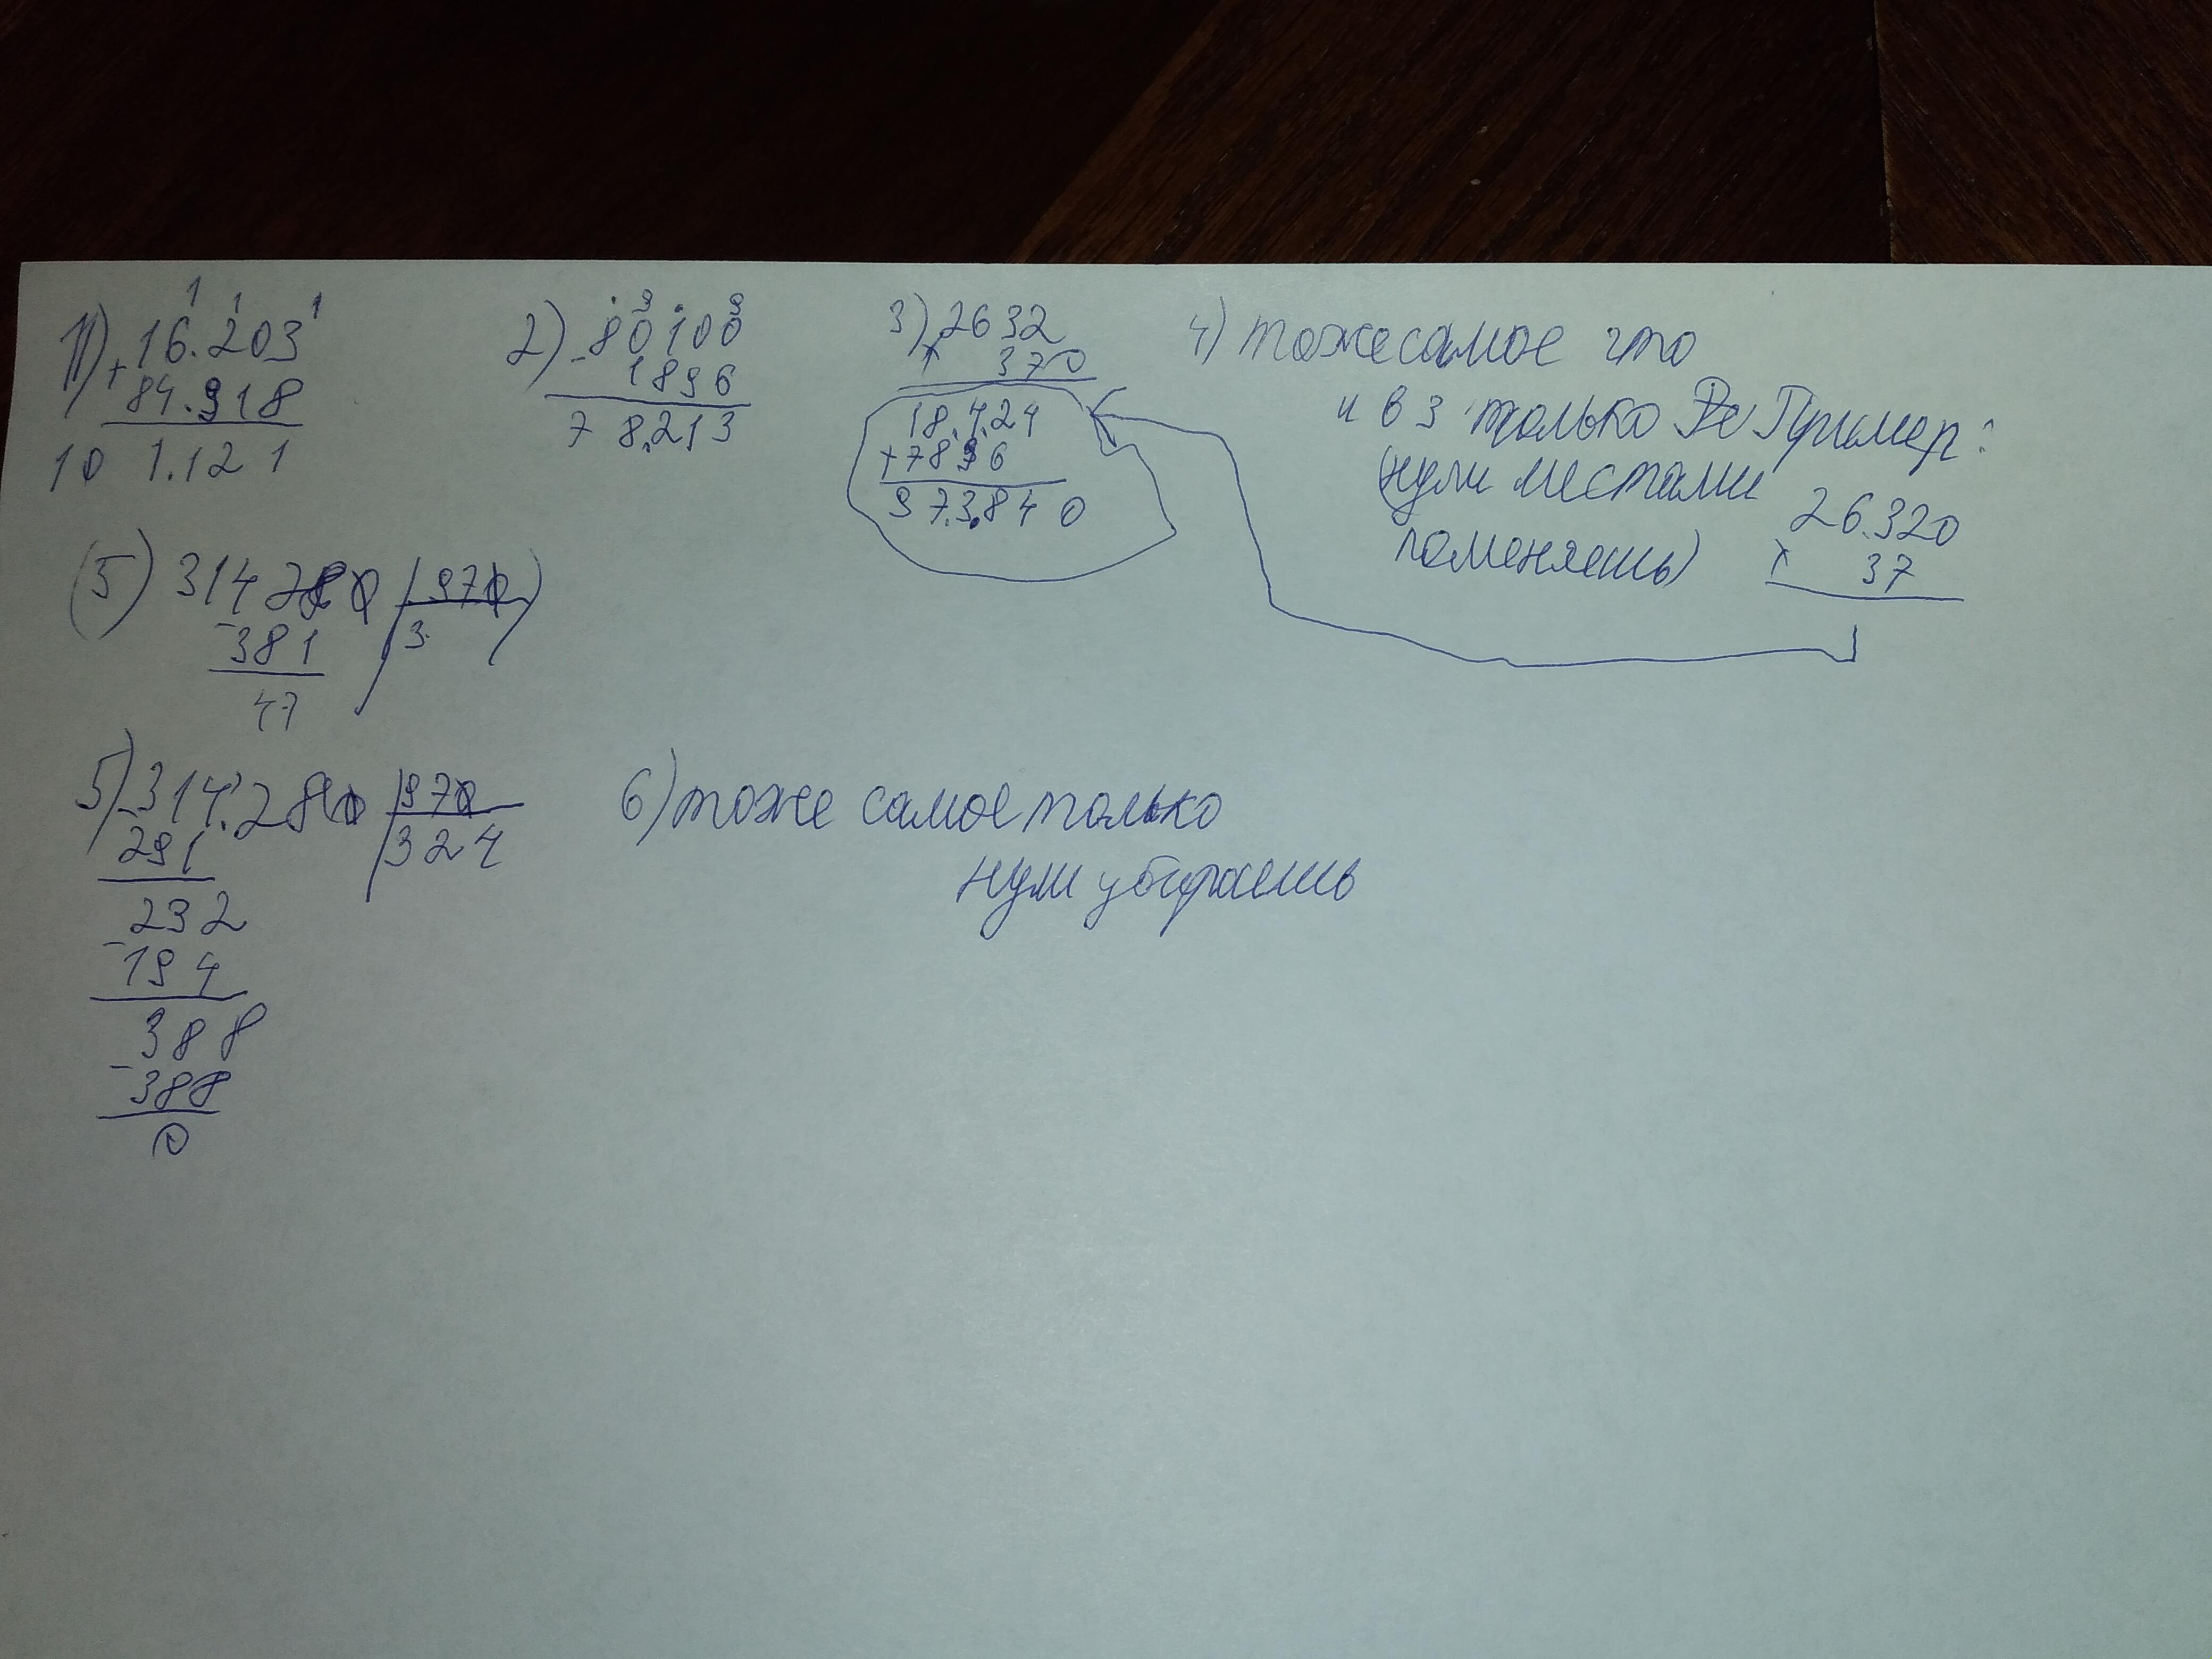 1) 16.203
+ 84.918
101.121
2) 80100
- 1896
78.213
3) 2632
x 370
18.424
+7896
973.840
4) тожесамое что
и в 3 только Пример:
(нули местами
поменяешь)
26.320
x 37
(5) 314280 | 970)
- 381 | 3.
47
5) 314.280 | 970
- 291 | 324
232
- 194
388
- 388
0
6) тоже самое только
нули убираешь